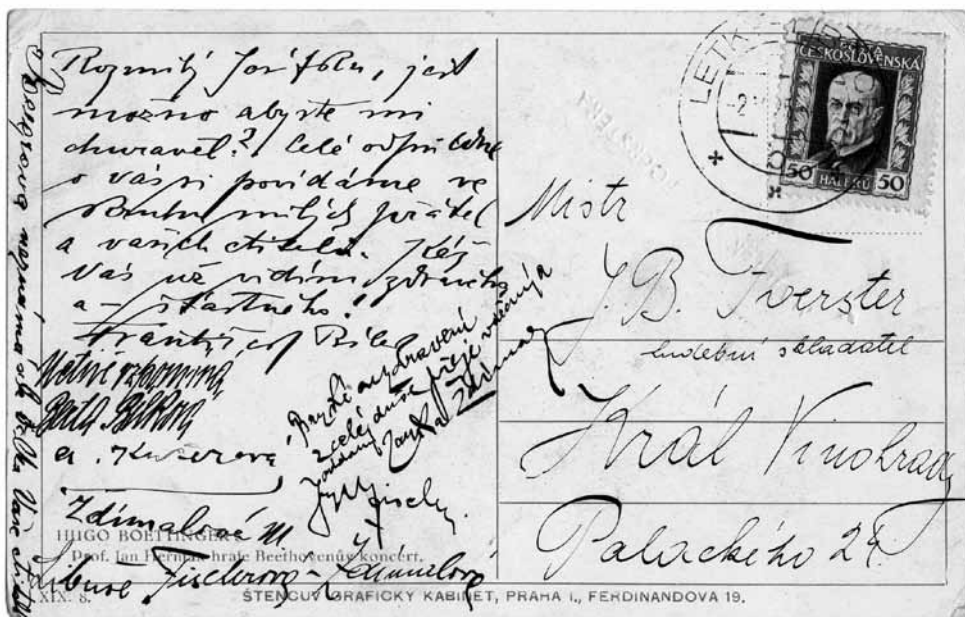 Rozmilý Josífku, jest
možno abyste mi
churavěl? Celé odpoledne
o vás si povídáme ve
kruhu milých přátel
a vašich ctitelů. Kéž
Vás už vidím zdravého
a – šťastného!
František Bílek
vzpomíná
Berta Bílková
a . Kučerová
Brzké uzdravení
z celé duše přeje vděčný a
oddaný
Ždímalová M
Libuše Fischerová-Ždímalová
HUGO BOETTINGER:
Prof. Jan Heřman hraje Beethovenův koncert.
XIX. 8.
ŠTENCŮV GRAFICKÝ KABINET, PRAHA I., FERDINANDOVA 19.
ČESKOSLOVENSKÁ
50 HALÉŘŮ 50
LETKY
Mistr
J. B. Foerster
hudební skladatel
Král Vinohrady
Palackého 24.